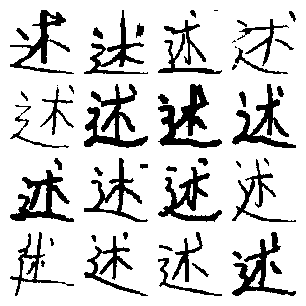 述述述述
述述述述
述述述述
述述述述